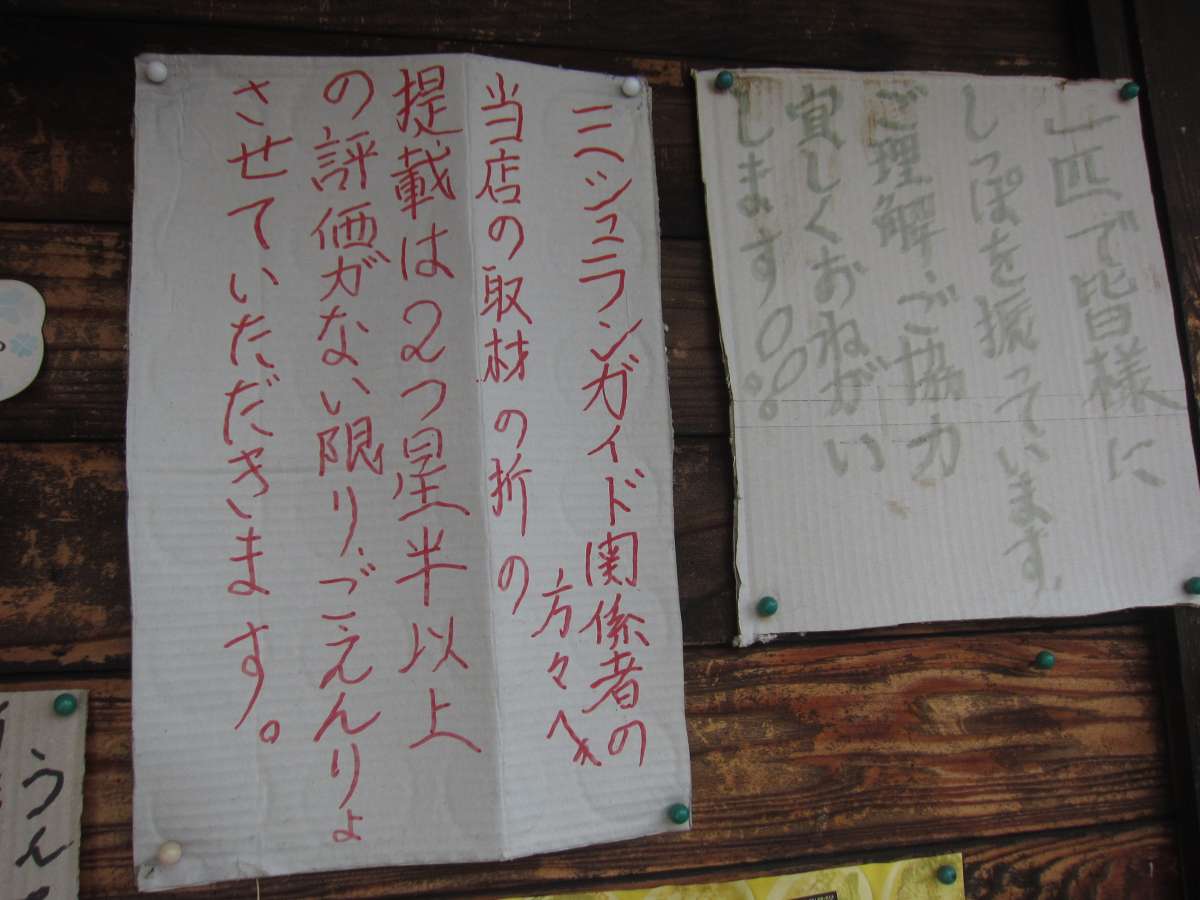 一匹で皆様に
しっぽを振っています。
ご理解、ご協力
宜しくおねがい
します。
ミシュランガイド関係者の
方々へ
当店の取材の折の
提載は2つ星半以上
の評価ガない限り、ごえんりょ
させていただきます。